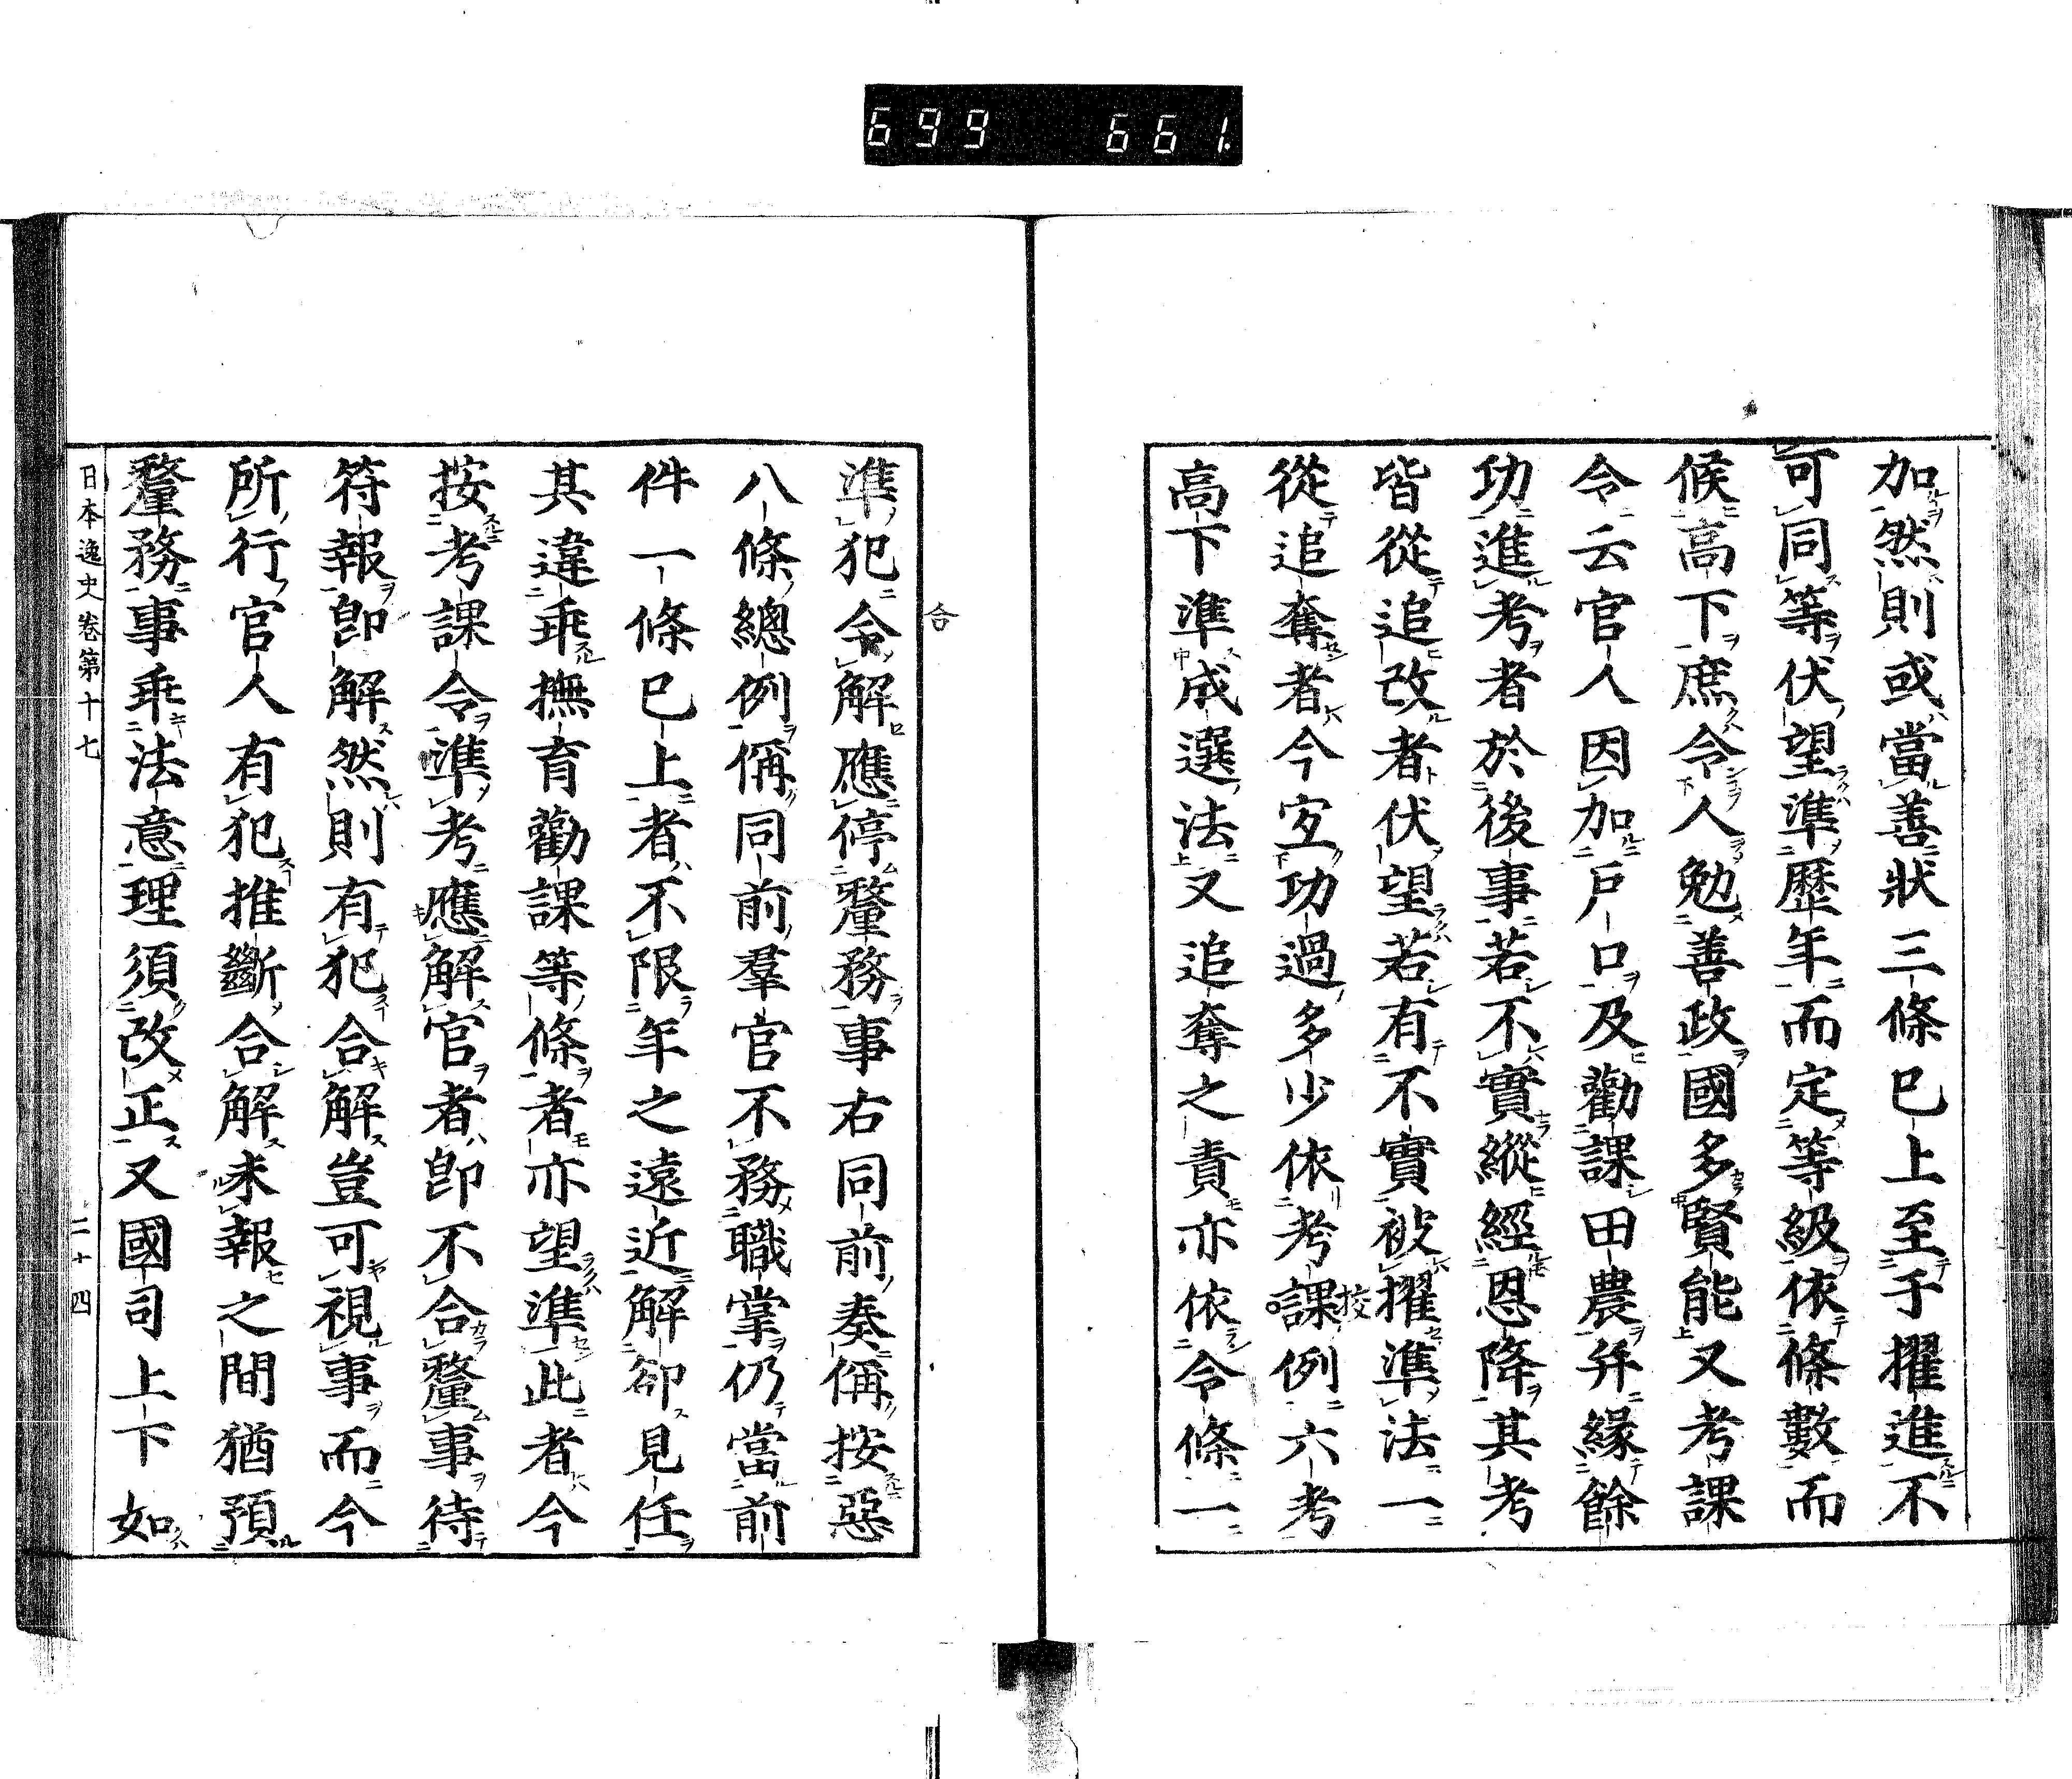 699 661
加然則或當善狀三條已上至于擢進不
可同等伏望準歷年而定等級依條數而
候高下庶令人勉善政國多賢能又考課
令云官人因加戶口及勸課田農并緣餘
功進考者於後事若不實縱經恩降其考
皆從追改者伏望若有不實被擢準法一
從追奪者今宜功過多少依考課例六考
校
高下準成選法又追奪之責亦依令條一
合
準犯令解應停釐務事右同前奏偁按惡
八條總例偁同前羣官不務職掌仍當前
件一條已上者不限年之遠近解卻見任
其違乖撫育勸課等條者亦望準此者今
按考課令準考應解官者即不合釐事待
符報即解然則有犯合解豈可視事而今
所行官人有犯推斷合解未報之間猶預
釐務事乖法意理須改正又國司上下如
日本逸史卷第十七 二十四